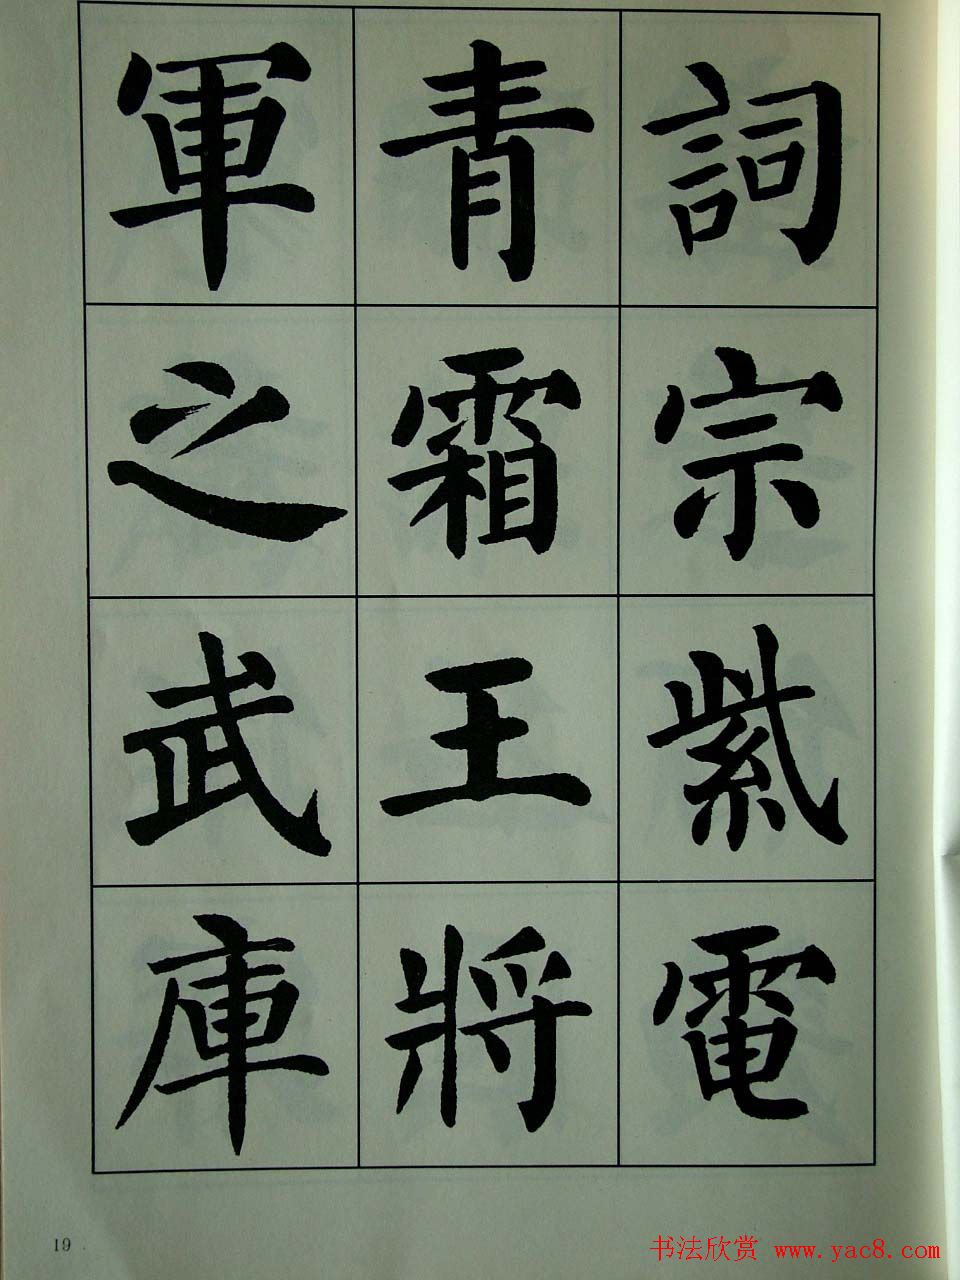 詞宗紫電
青霜王將
軍之武庫
19
书法欣赏 www.yac8.com